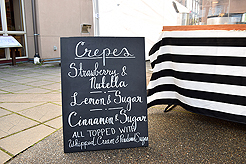 Crepes
Strawberry &
Nutella
Lemon & Sugar
Cinnamon & Sugar
ALL TOPPED WITH
Whipped Cream & Powdered Sugar